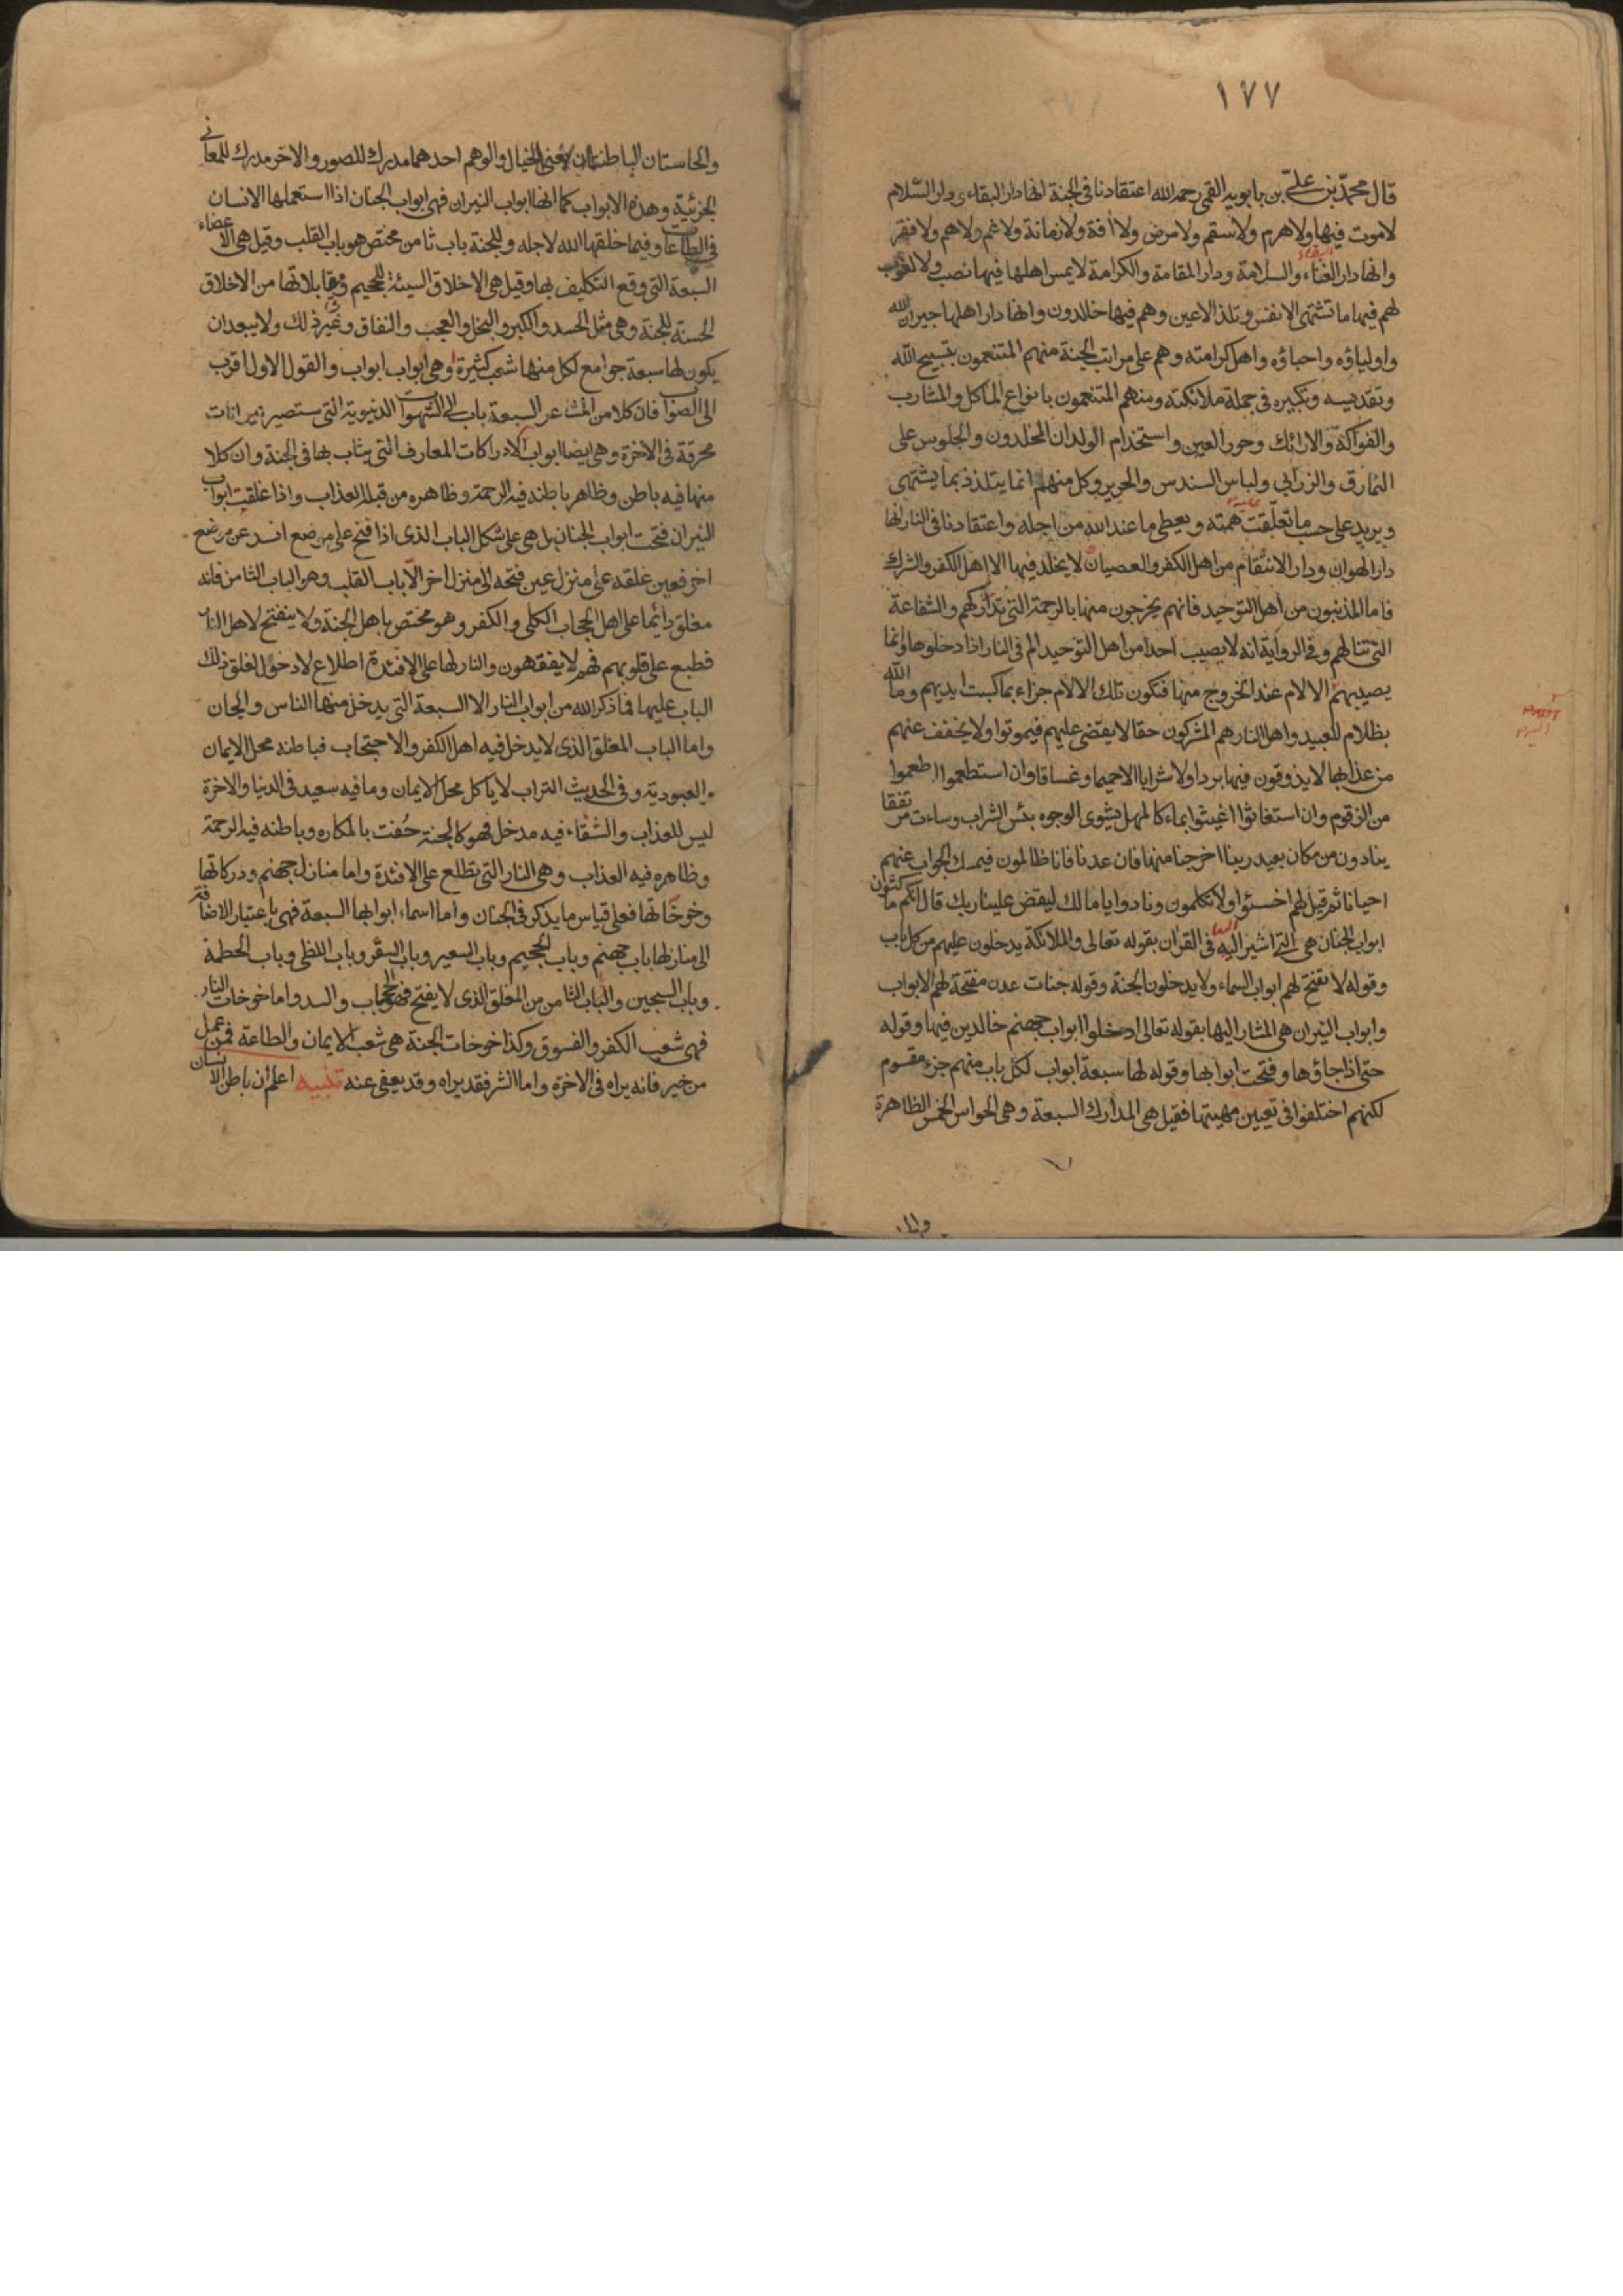 ١٧٧
قال محمد بن علي بن بابويه القمي رحمه الله اعتقادنا في الجنة انها دار البقاء و دار السلام
لا موت فيها ولا هرم ولا سقم ولا مرض ولا آفة ولا زمانة ولا غم ولا هم ولا فقر
وانها دار الغناء والسلامة ودار المقامة والكرامة لا يمس اهلها فيها نصب ولا لغوب
لهم فيها ما تشتهى الانفس وتلذ الاعين وهم فيها خالدون وانها دار اهلها جيران الله
واولياؤه واحباؤه واهل كرامته وهم على مراتب الجنة منهم المتنعمون بتسبيح الله
وتقديسه وتكبيره فى جملة ملائكته ومنهم المتنعمون بانواع المآكل والمشارب
والفواكه والارائك وحور العين واستخدام الولدان المخلدون والجلوس على
النمارق والزرابى ولباس السندس والحرير وكل منهم انما يتلذذ بما يشتهى
ويريد على حسب ما تعلقت همته ويعطى ما عند الله من اجله واعتقادنا فى النار انها
دار الهوان ودار الانتقام من اهل الكفر والعصيان لا يخلد فيها الا اهل الكفر والشرك
فاما المذنبون من اهل التوحيد فانهم يخرجون منها بالرحمة التى تداركهم والشفاعة
التى تنالهم وفى الرواية انه لا يصيب احدا من اهل التوحيد الم فى النار اذا دخلوها وانما
يصيبهم الالام عند الخروج منها فتكون تلك الالام جزاء بما كسبت ايديهم وما الله
بظلام للعبيد واهل النار هم المشركون حقا لا يقضى عليهم فيموتوا ولا يخفف عنهم
من عذابها لا يذوقون فيها بردا ولا شرابا الا حميما وغساقا وان استطعموا اطعموا
من الزقوم وان استغاثوا اغيثوا بماء كالمهل يشوى الوجوه بئس الشراب وساءت مرتفقا
ينادون من مكان بعيد ربنا اخرجنا منها فان عدنا فانا ظالمون فيمسك الجواب عنهم
احيانا ثم قيل لهم اخسئوا ولا تكلمون ونادوا يا مالك ليقض علينا ربك قال انكم ماكثون
ابواب الجنان هى التى اشير اليه فى القران بقوله تعالى والملائكة يدخلون عليهم من كل باب
وقوله لا تفتح لهم ابواب السماء ولا يدخلون الجنة وقوله جنات عدن مفتحة لهم الابواب
وابواب النيران هى المشار اليها بقوله تعالى ادخلوا ابواب جهنم خالدين فيها وقوله
حتى اذا جاؤها وفتحت ابوابها وقوله لها سبعة ابواب لكل باب منهم جزء مقسوم
لكنهم اختلفوا فى تعيين مهيتها فقيل هى المدارك السبعة وهى الحواس الخمس الظاهرة
والحاستان الباطنتان اعنى الخيال والوهم احدهما مدرك للصور والاخر مدرك للمعانى
الجزئية وهذه الابواب كما انها ابواب النيران فهى ابواب الجنان اذا استعملها الانسان
فى الطاعات وفيما خلقها الله لاجله وللجنة باب ثامن مختص هو باب القلب وقيل هى الاعضاء
السبعة التى وقع التكليف بها وقيل هى الاخلاق السيئة للجحيم ومقابلاتها من الاخلاق
الحسنة للجنة وهى مثل الحسد والكبر والبخل والعجب والنفاق وغير ذلك ولا يبعد ان
يكون لها سبعة جوامع لكل منها شعب كثيرة وهى ابواب ابواب والقول الاول اقرب
الى الصواب فان كلا من المشاعر السبعة باب الى الشهوات الدنيوية التى ستصير نيرانات
محرقة فى الاخرة وهى ايضا ابواب الادراكات المعارف التى يثاب بها فى الجنة وان كلا
منها فيه باطن وظاهر باطنه فيه الرحمة وظاهره من قبله العذاب واذا غلقت ابواب
النيران فتحت ابواب الجنان بل هى على شكل الباب الذى اذا فتح على موضع انسد عن موضع
اخر فعين غلقه على منزل عين فتحه الى منزل اخر الا باب القلب وهو الباب الثامن فانه
مغلق دائما على اهل الحجاب الكلى والكفر وهو مختص باهل الجنة ولا ينفتح لاهل النار
فطبع على قلوبهم فهم لا يفقهون والنار لها على الافئدة اطلاع لا دخول لغلق ذلك
الباب عليها فما ذكر الله من ابواب النار الا السبعة التى يدخل منها الناس والجان
واما الباب المغلق الذى لا يدخل فيه اهل الكفر والاحتجاب فباطنه محل الايمان
والعبودية وفى الحديث التراب لا ياكل محل الايمان وما فيه سعيد فى الدنيا والاخرة
ليس للعذاب والشقاء فيه مدخل فهو كالجنة حفت بالمكاره وباطنه فيه الرحمة
وظاهره فيه العذاب وهى النار التى تطلع على الافئدة واما منازل جهنم ودركاتها
وخوخاتها فعلى قياس ما يذكر فى الجنان واما اسماء ابوابها السبعة فهى باعتبار الاضافة
الى منازلها باب جهنم وباب الجحيم وباب السعير وباب السقر وباب اللظى وباب الحطمة
وباب السجين والباب الثامن من المغلق الذى لا يفتح فهو الحجاب والسد واما خوخات النار
فهى شعب الكفر والفسوق وكذا خوخات الجنة هى شعب الايمان والطاعة فمن عمل
من خير فانه يراه فى الاخرة واما الشر فقد يراه وقد يعفى عنه تنبيه اعلم ان باطن الانسان